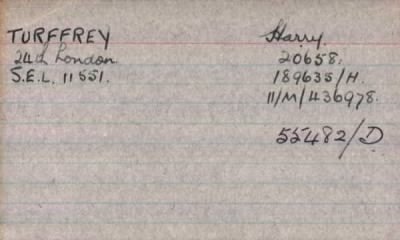 TURFFREY Harry
24th London 20658.
S.E.L. 11551. 189635/H.
11/M/436978.
55482/D